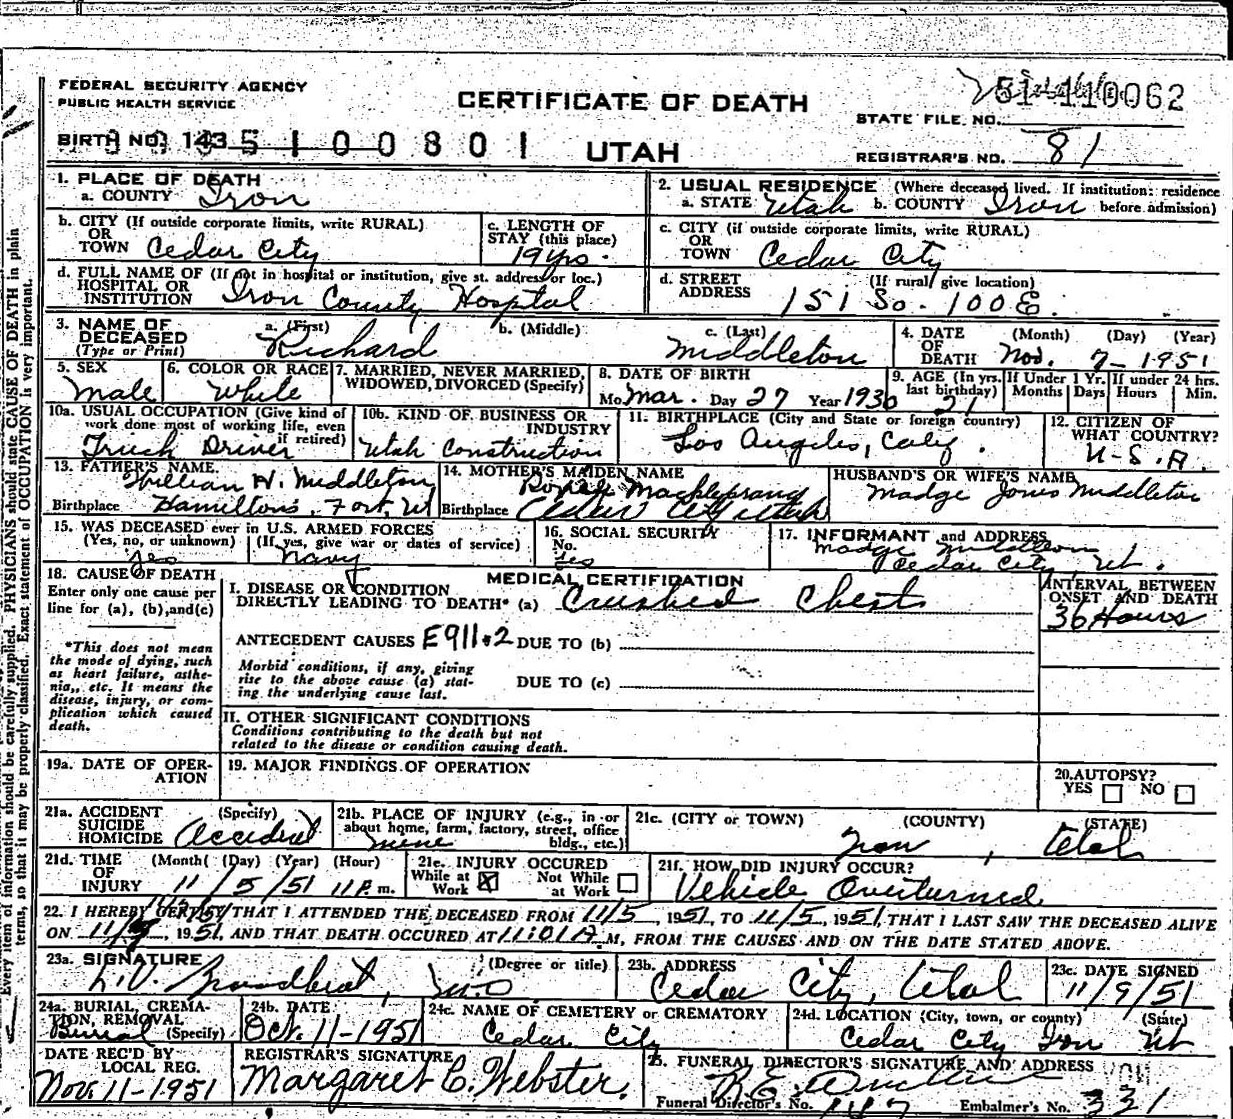 FEDERAL SECURITY AGENCY
PUBLIC HEALTH SERVICE
CERTIFICATE OF DEATH
51-110062
STATE FILE NO.
BIRTH NO. 143 5100801
UTAH
REGISTRAR'S NO. 81
1. PLACE OF DEATH
a. COUNTY Iron
2. USUAL RESIDENCE (Where deceased lived. If institution: residence
a. STATE Utah b. COUNTY Iron before admission)
b. CITY (If outside corporate limits, write RURAL)
OR
TOWN Cedar City
c. LENGTH OF
STAY (this place)
19 yrs.
c. CITY (if outside corporate limits, write RURAL)
OR
TOWN Cedar City
d. FULL NAME OF (If not in hospital or institution, give st. address or loc.)
HOSPITAL OR
INSTITUTION Iron County Hospital
d. STREET (If rural, give location)
ADDRESS 151 So. 100 E.
3. NAME OF
DECEASED
(Type or Print)
a. (First) b. (Middle) c. (Last)
Richard Middleton
4. DATE (Month) (Day) (Year)
OF
DEATH Nov. 7-1951
5. SEX
Male
6. COLOR OR RACE
White
7. MARRIED, NEVER MARRIED,
WIDOWED, DIVORCED (Specify)
8. DATE OF BIRTH
Mo. Mar. Day 27 Year 1930
9. AGE (In yrs.
last birthday)
21
If Under 1 Yr.
Months Days
If under 24 hrs.
Hours Min.
10a. USUAL OCCUPATION (Give kind of
work done most of working life, even
if retired)
Truck Driver
10b. KIND OF BUSINESS OR
INDUSTRY
Utah Construction
11. BIRTHPLACE (City and State or foreign country)
Los Angeles, Calif.
12. CITIZEN OF
WHAT COUNTRY?
U.S.A.
13. FATHER'S NAME
William H. Middleton
Birthplace Hamiltons Fort, Ut
14. MOTHER'S MAIDEN NAME
Mackleprang
Birthplace Cedar City Utah
HUSBAND'S OR WIFE'S NAME
Madge Jones Middleton
15. WAS DECEASED ever in U.S. ARMED FORCES
(Yes, no, or unknown) (If yes, give war or dates of service)
yes Navy
16. SOCIAL SECURITY
No.
yes
17. INFORMANT and ADDRESS
Madge Middleton
Cedar City, Ut.
18. CAUSE OF DEATH
Enter only one cause per
line for (a), (b), and (c)
*This does not mean
the mode of dying, such
as heart failure, asthe-
nia, etc. It means the
disease, injury, or com-
plication which caused
death.
MEDICAL CERTIFICATION
I. DISEASE OR CONDITION
DIRECTLY LEADING TO DEATH* (a) Crushed Chest
INTERVAL BETWEEN
ONSET AND DEATH
36 Hours
ANTECEDENT CAUSES E911.2 DUE TO (b)
Morbid conditions, if any, giving
rise to the above cause (a) stat-
ing the underlying cause last.
DUE TO (c)
II. OTHER SIGNIFICANT CONDITIONS
Conditions contributing to the death but not
related to the disease or condition causing death.
19a. DATE OF OPER-
ATION
19. MAJOR FINDINGS OF OPERATION
20. AUTOPSY?
YES NO
21a. ACCIDENT (Specify)
SUICIDE
HOMICIDE Accident
21b. PLACE OF INJURY (e.g., in or
about home, farm, factory, street, office
bldg., etc.)
mine
21c. (CITY or TOWN) (COUNTY) (STATE)
Iron, Utah
21d. TIME (Month) (Day) (Year) (Hour)
OF
INJURY 11/5/51 11 P. m.
21e. INJURY OCCURED
While at Work Not While at Work
21f. HOW DID INJURY OCCUR?
Vehicle Overturned
22. I HEREBY CERTIFY THAT I ATTENDED THE DECEASED FROM 11/5, 1951, TO 11/5, 1951, THAT I LAST SAW THE DECEASED ALIVE
ON 11/, 1951, AND THAT DEATH OCCURED AT 11:01 A.M, FROM THE CAUSES AND ON THE DATE STATED ABOVE.
23a. SIGNATURE (Degree or title)
L.V. M.D
23b. ADDRESS
Cedar City, Utah
23c. DATE SIGNED
11/9/51
24a. BURIAL, CREMA-
TION, REMOVAL
Burial (Specify)
24b. DATE
Oct. 11-1951
24c. NAME OF CEMETERY or CREMATORY
Cedar City
24d. LOCATION (City, town, or county) (State)
Cedar City Iron Ut
DATE REC'D BY
LOCAL REG.
Nov. 11-1951
REGISTRAR'S SIGNATURE
Margaret C. Webster.
25. FUNERAL DIRECTOR'S SIGNATURE AND ADDRESS
Funeral Director's No. 147 Embalmer's No. 331
Every item of information should be carefully supplied. PHYSICIANS should state CAUSE OF DEATH in plain
terms, so that it may be properly classified. Exact statement of OCCUPATION is very important.